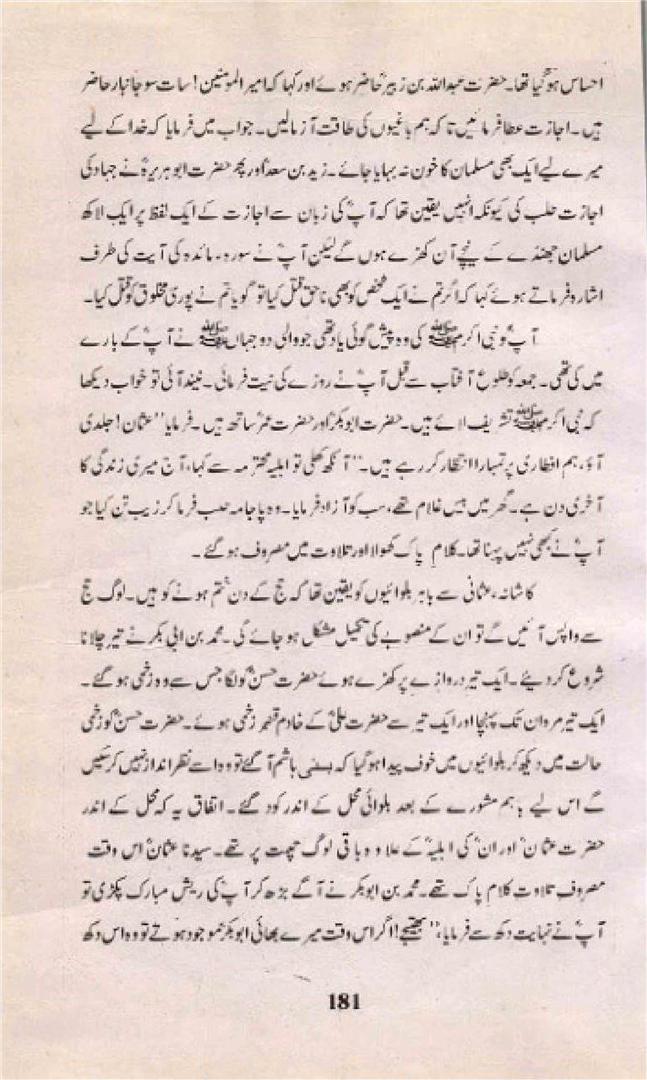 احساس ہو گیا تھا۔ حضرت عبداللہ بن زبیرؓ حاضر ہوئے اور کہا کہ امیر المومنین! سات سو جانباز حاضر
ہیں۔ اجازت عطا فرمائیں تا کہ ہم باغیوں کی طاقت آزما لیں۔ جواب میں فرمایا کہ خدا کے لیے
میرے لیے ایک بھی مسلمان کا خون نہ بہایا جائے۔ زید بن سعدؓ اور پھر حضرت ابو ہریرہؓ نے جہاد کی
اجازت طلب کی کیونکہ انہیں یقین تھا کہ آپؓ کی زبان سے اجازت کے ایک لفظ پر ایک لاکھ
مسلمان جھنڈے کے نیچے آن کھڑے ہوں گے لیکن آپؓ نے سورہ، مائدہ کی آیت کی طرف
اشارہ فرماتے ہوئے کہا کہ اگر تم نے ایک شخص کو بھی ناحق قتل کیا تو گویا تم نے پوری مخلوق کو قتل کیا۔
آپؓ کو نبی اکرم ﷺ کی وہ پیش گوئی یاد تھی جو والی دو جہاں ﷺ نے آپؓ کے بارے
میں کی تھی۔ جمعہ کو طلوع آفتاب سے قبل آپؓ نے روزے کی نیت فرمائی۔ نیند آئی تو خواب دیکھا
کہ نبی اکرم ﷺ تشریف لائے ہیں۔ حضرت ابوبکرؓ اور حضرت عمرؓ ساتھ ہیں۔ فرمایا ”عثمان! جلدی
آؤ، ہم افطاری پر تمہارا انتظار کر رہے ہیں۔“ آنکھ کھلی تو اہلیہ محترمہ سے کہا، آج میری زندگی کا
آخری دن ہے۔ گھر میں بیس غلام تھے، سب کو آزاد فرمایا۔ وہ پاجامہ طلب فرما کر زیب تن کیا جو
آپؓ نے کبھی نہیں پہنا تھا۔ کلام پاک کھولا اور تلاوت میں مصروف ہو گئے۔
کاشانہ، عثمانی سے باہر بلوائیوں کو یقین تھا کہ حج کے دن ختم ہونے کو ہیں۔ لوگ حج
سے واپس آئیں گے تو ان کے منصوبے کی تکمیل مشکل ہو جائے گی۔ محمد بن ابی بکر نے تیر چلانا
شروع کر دیئے۔ ایک تیر دروازے پر کھڑے ہوئے حضرت حسنؓ کو لگا جس سے وہ زخمی ہو گئے۔
ایک تیر مروان تک پہنچا اور ایک تیر سے حضرت علیؓ کے خادم قنبر زخمی ہوئے۔ حضرت حسنؓ کو زخمی
حالت میں دیکھ کر بلوائیوں میں خوف پیدا ہو گیا کہ بنی ہاشم آ گئے تو وہ اسے نظر انداز نہیں کر سکیں
گے اس لیے باہم مشورے کے بعد بلوائی محل کے اندر کود گئے۔ اتفاق یہ کہ محل کے اندر
حضرت عثمانؓ اور انؓ کی اہلیہؓ کے علاوہ باقی لوگ چھت پر تھے۔ سیدنا عثمانؓ اس وقت
مصروف تلاوت کلام پاک تھے۔ محمد بن ابوبکر نے آگے بڑھ کر آپؓ کی ریش مبارک پکڑی تو
آپؓ نے نہایت دکھ سے فرمایا، ”بھتیجے! اگر اس وقت میرے بھائی ابوبکرؓ موجود ہوتے تو وہ اس دکھ
181